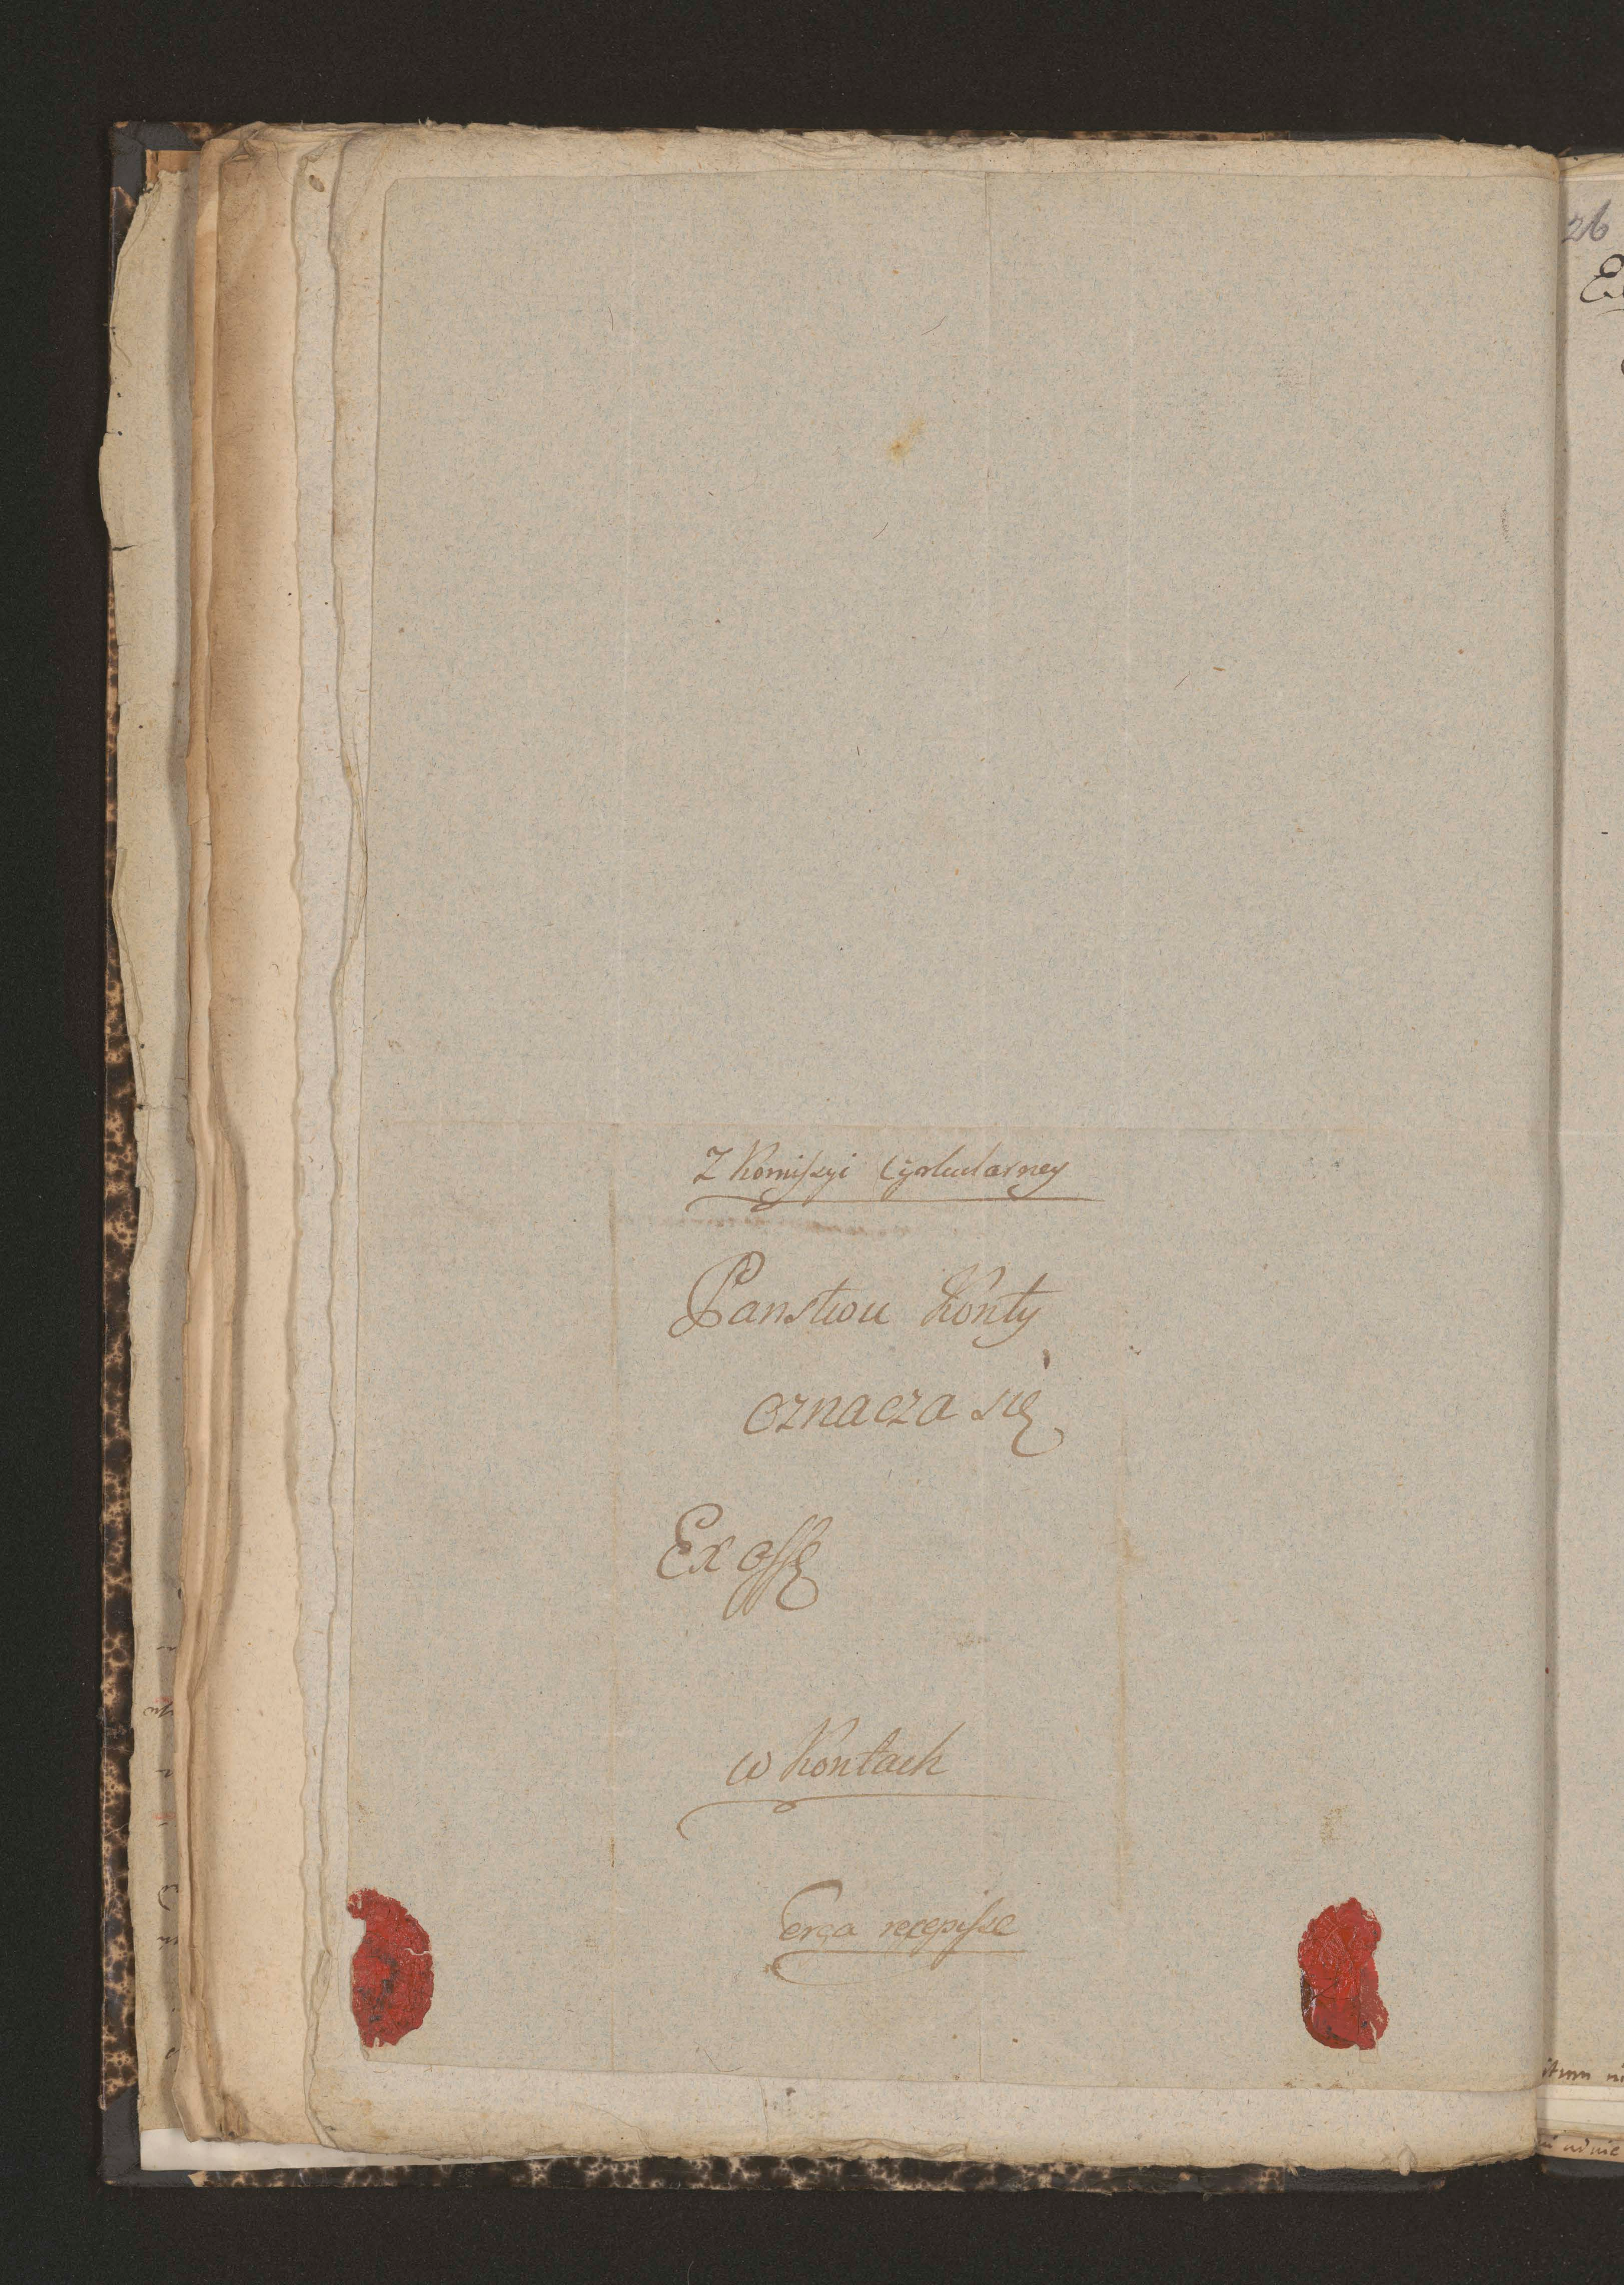 Z Komissyi Cyrkularney
Panstwu Kónty
oznacza się
Ex offo
w Kontach
erga recepisse
26